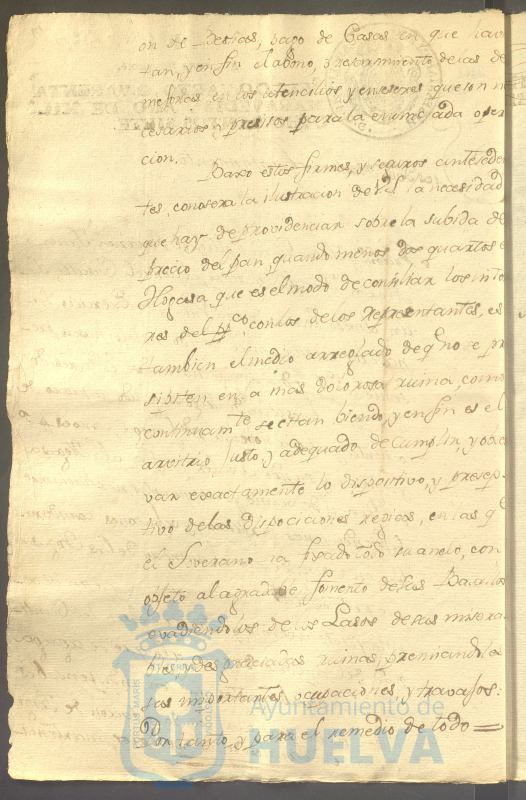 on de Bestias, pago de Casas en que havi
tan, y en fin el abono, y detrimento de las de
mejoras en los utencilios y enseres que son ne
cesarios y presisos para la enunciada opera
cion.
Baxo estos firmes, y seguros anteseden
tes, conosera la ilustracion de VS. la necesidad
que hay de providenciar sobre la subida de
precio del pan quando menos dos quartos en
Hogasa que es el modo de consiliar los inte
reses del pco. con los de los Representantes, es
tambien el medio arreglado de qe. no se pre
sipiten en la mas dolorosa ruina, como
continuamte. se estan biendo, y en fin es el
arvitrio justo, y adequado de cumplir, y obser
var exactamente lo dispositivo, y presep-
tivo de las Disposiciones regias, en las qe.
el Soverano ha fixado todo su anelo, con
objeto al agradable fomento de sus Basallos
evadiendolos de los Lasos de sus misera
bles, y desgraciadas ruinas, premiando le
sus importantes ocupaciones, y travajos:
Por tanto, y para el remedio de todo =
PORTUS MARIS
ET TERRAE
CUSTODIA
Ayuntamiento de
HUELVA